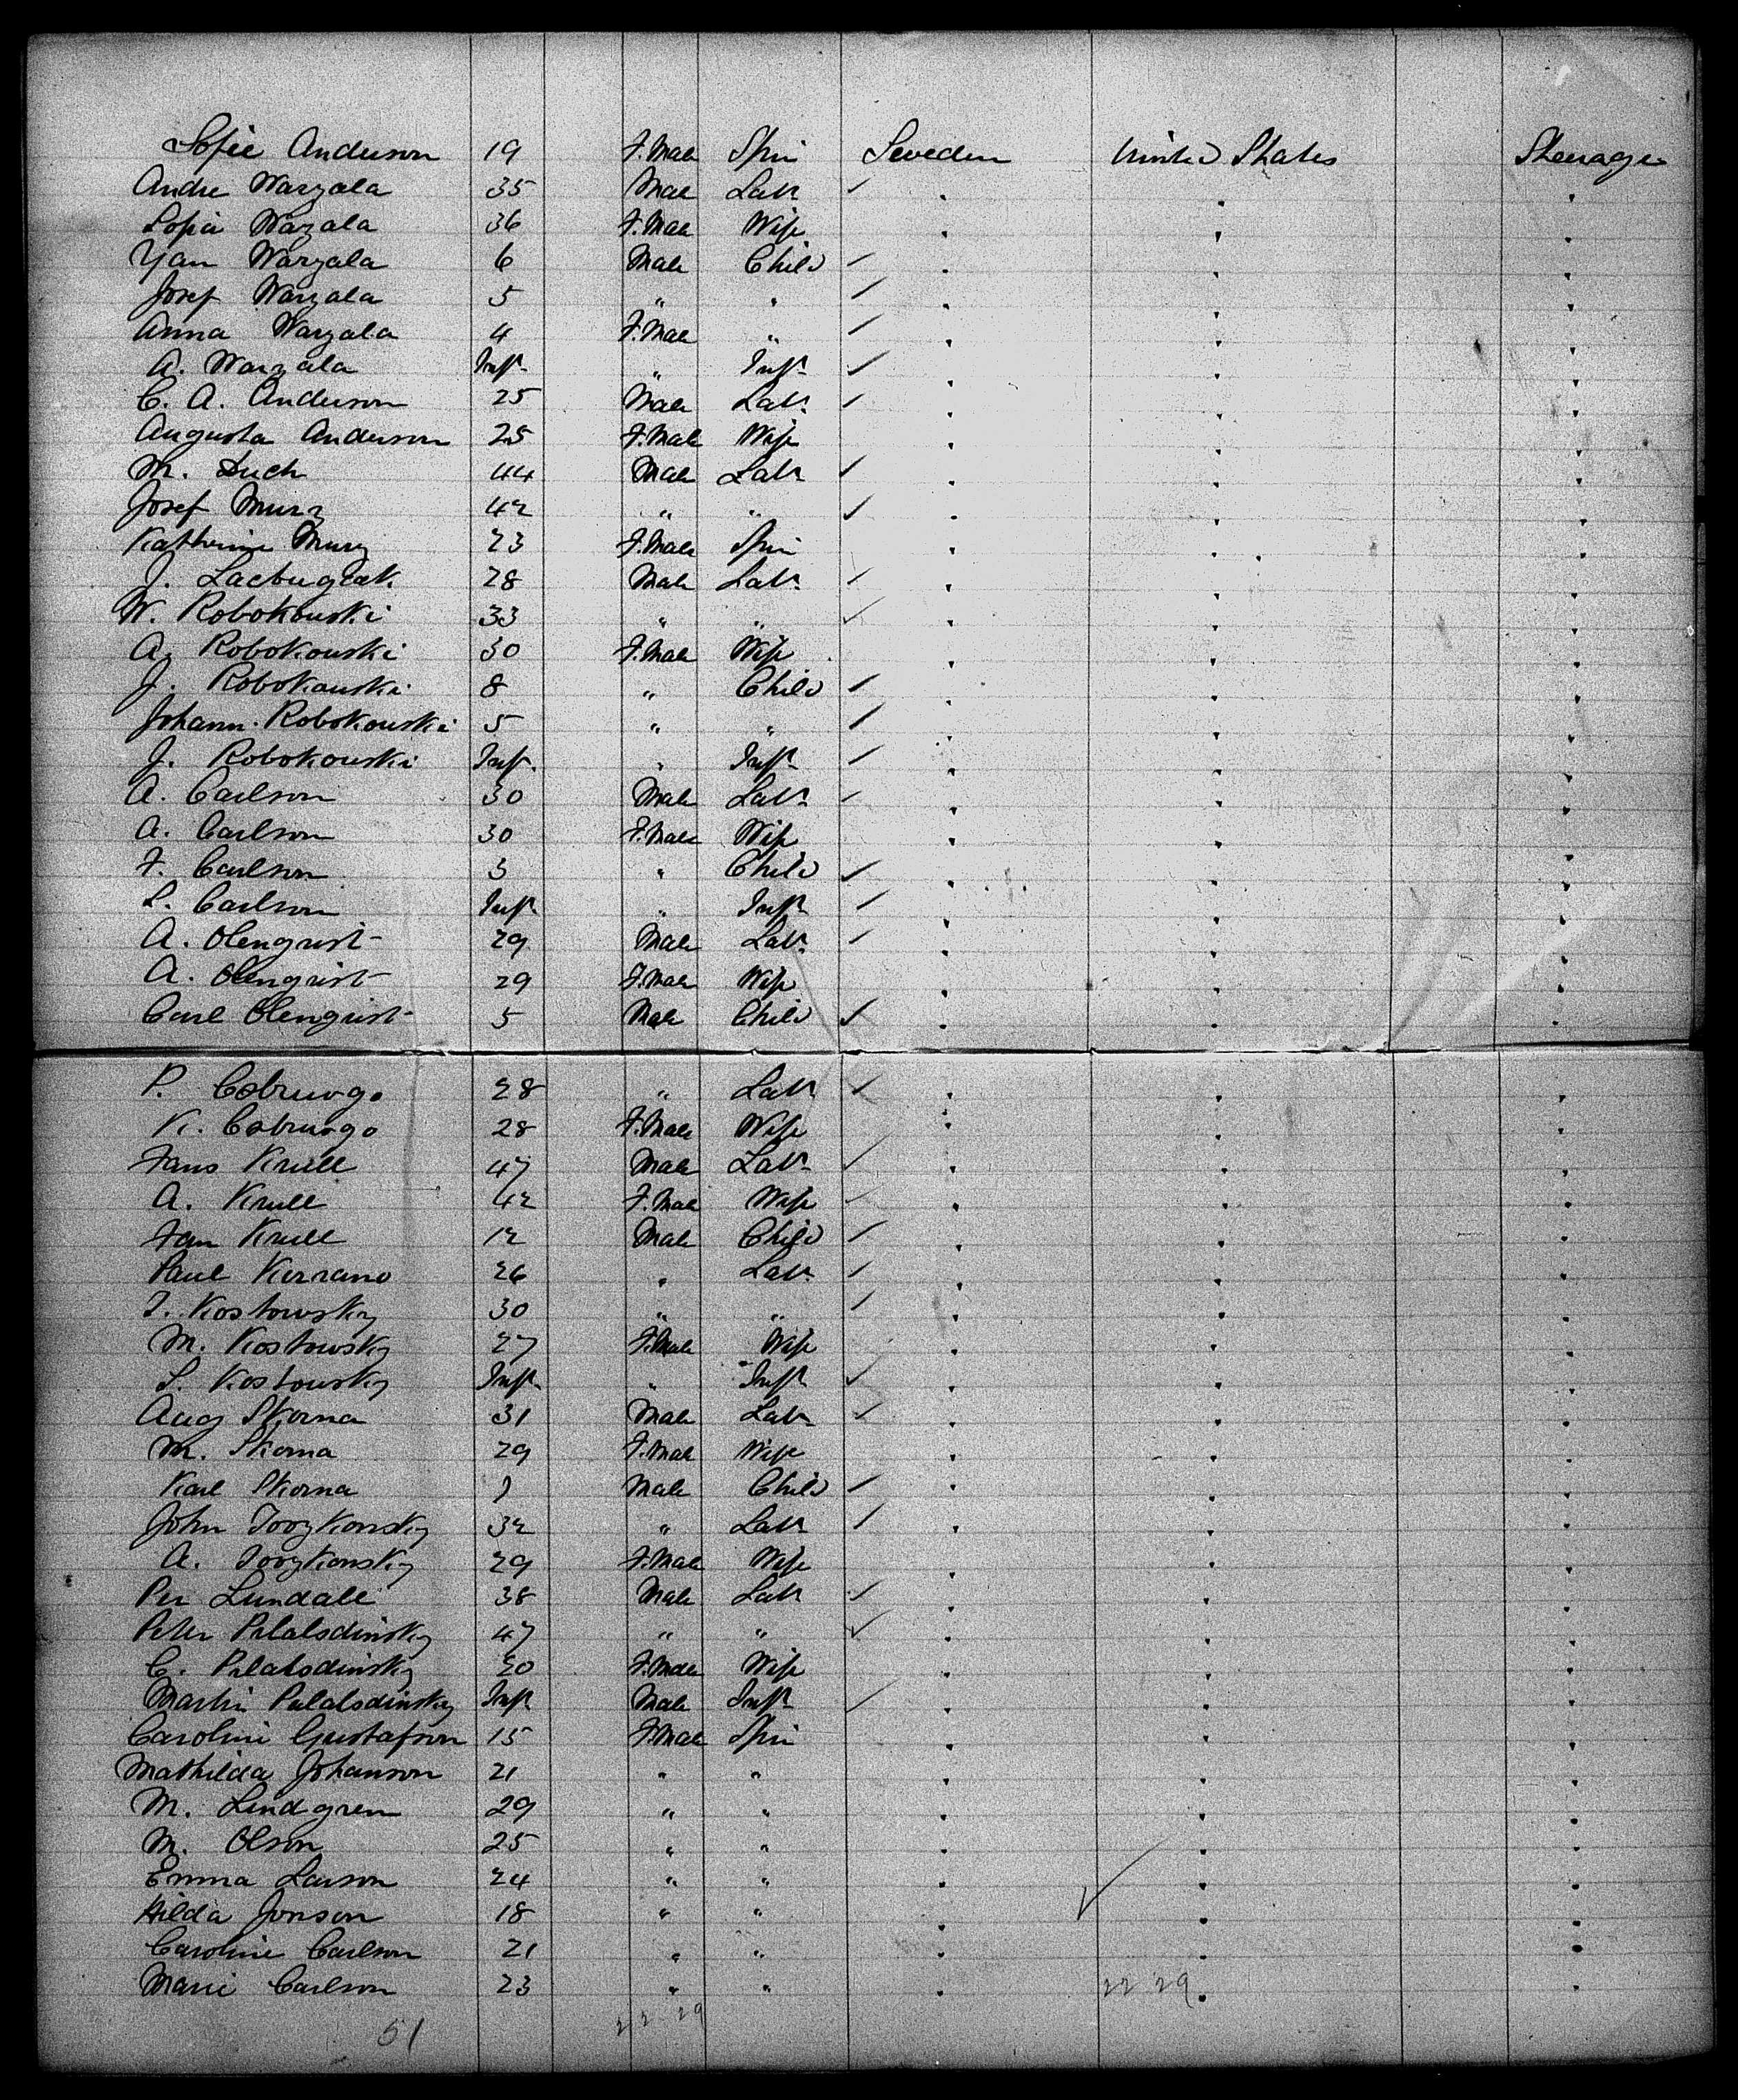 Sofie Anderson 19 F.Male Spin Sweden United States Steerage
Andre Warzala 35 Male Labr "  "  "
Sofia Warzala 36 F.Male Wife " " "
Yan Warzala 6 Male Child " " "
Josef Warzala 5 " " " " "
Anna Warzala 4 F.Male " " " "
A. Warzala Inft " Inft " " "
C. A. Anderson 25 Male Labr " " "
Augusta Anderson 25 F.Male Wife " " "
M. Duch 44 Male Labr " " "
Josef Murz 42 " " " " "
Katherine Murz 23 F.Male Spin " " "
J. 28 Male Labr " " "
W. Robokouski 33 " " " " "
A. Robokouski 30 F.Male Wife " " "
J. Robokouski 8 " Child " " "
Johann Robokouski 5 " " " " "
J. Robokouski Inft " Inft " " "
A. Carlson 30 Male Labr " " "
A. Carlson 30 F.Male Wife " " "
F. Carlson 3 " Child " " "
S. Carlson Inft " Inft " " "
A. Olenqvist 29 Male Labr " " "
A. Olenqvist 29 F.Male Wife " " "
Carl Olenqvist 5 Male Child " " "
P. 28 " Labr " " "
K. 28 F.Male Wife " " "
Krull 47 Male Labr " " "
A. Krull 42 F.Male Wife " " "
Krull 12 Male Child " " "
Paul 26 " Labr " " "
Kostowsky 30 " " " " "
M. Kostowsky 27 F.Male Wife " " "
S. Kostowsky Inft " Inft " " "
Aug Skorna 31 Male Labr " " "
M. Skorna 29 F.Male Wife " " "
Karl Skorna Male Child " " "
John 32 " Labr " " "
A. 29 F.Male Wife " " "
Per Lundall 38 Male Labr " " "
Peter 47 " " " " "
C. F.Male Wife " " "
Martin Inft Male Inft " " "
Caroline Gustafson 15 F.Male Spin " " "
Mathilda Johanson 21 " " " " "
M. Lindgren 29 " " " " "
M. Olson 25 " " " " "
Emma Larson 24 " " " " "
Hilda Jonson 18 " " " " "
Caroline Carlson 21 " " " " "
Marie Carlson 23 " " " 22 29 " "
51 22 29